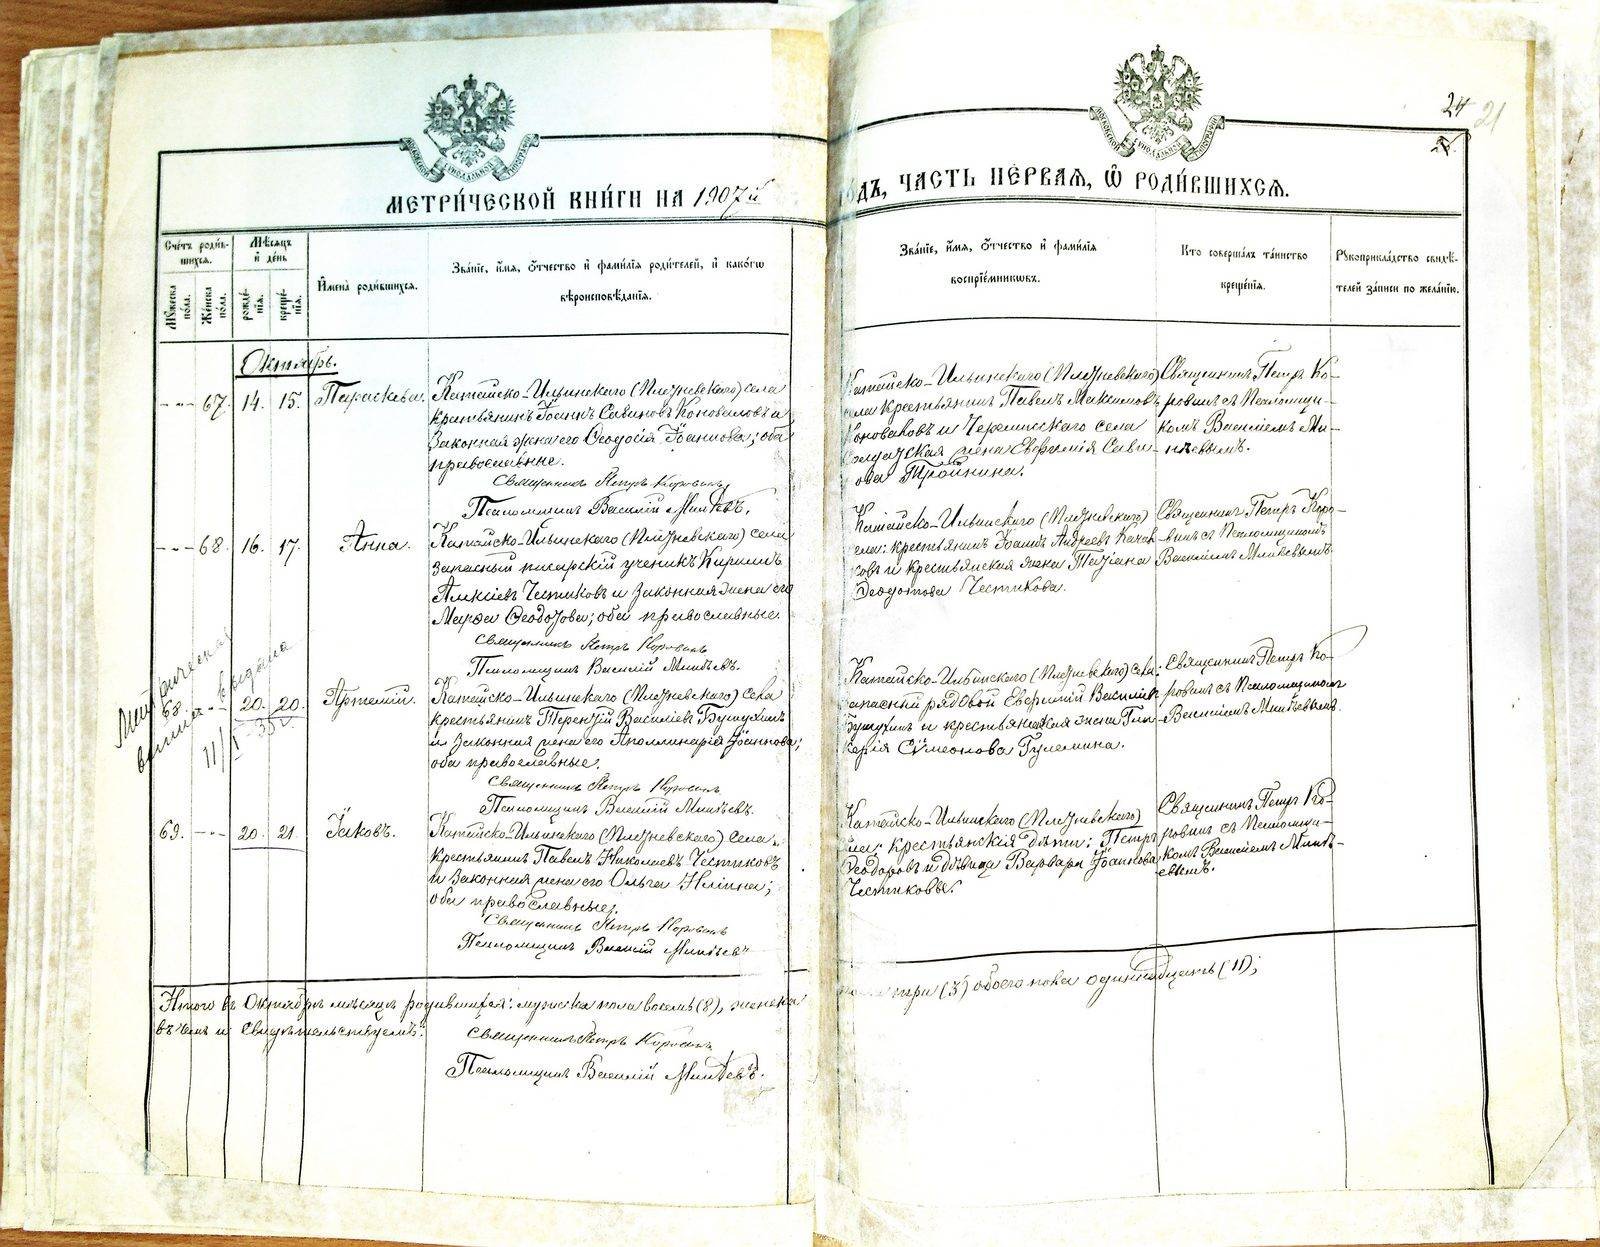 МОСКОВСКОЙ СѴНОДАЛЬНОЙ ТИПОГРАФІИ
МОСКОВСКОЙ СѴНОДАЛЬНОЙ ТИПОГРАФІИ
24 21
МЕТРИ́ЧЕСКОЙ КНИ́ГИ НА 1907й
ГОДЪ, ЧАСТЬ ПЕ́РВАЯ, Ѡ҆ РОДИ́ВШИХСЯ.
Сче́тъ роди́в-
шихся.
Мꙋ́жеска по́ла.
Же́нска по́ла.
Мѣ́сяцъ
и҆ де́нь
рожде́-
нїѧ.
креще́-
нїѧ.
И҆мена̀ роди́вшихся.
Зва́нїе, и҆́мя, ѻ҆́тчество и҆ фами́лїя роди́телей, и҆ како́гѡ
вѣроисповѣ́данїя.
Зва́нїе, и҆́мя, ѻ҆́тчество и҆ фами́лїя
воспрїе́мниковъ.
Кто соверша́лъ та́инство
креще́нїя.
Рꙋкоприкла́дство свидѣ́-
телей за́писи по жела́нїю.
Октябрь.
--- 67. 14. 15. Параскева.
Катайско-Ильинскаго (Плотневскаго) села
крестьянинъ Іоаннъ Савиновъ Коноваловъ и
законная жена его Ѳеодосія Іоаннова; оба
православные.
Священникъ Петръ Коровинъ
Псаломщикъ Василій Минѣевъ.
Катайско-Ильинскаго (Плотневскаго)
села крестьянинъ Павелъ Максимовъ
Коноваловъ и Черемисскаго села
солдатская жена Евфимія Сави-
нова Тройнина.
Священникъ Петръ Ко-
ровинъ съ псаломщи-
комъ Василіемъ Ми-
нѣевымъ.
--- 68. 16. 17. Анна.
Катайско-Ильинскаго (Плотневскаго) села
запасный писарскій ученикъ Кириллъ
Алексѣевъ Честиковъ и законная жена его
Марѳа Ѳеодотова; оба православные.
Священникъ Петръ Коровинъ
Псаломщикъ Василій Минѣевъ.
Катайско-Ильинскаго (Плотневскаго)
села: крестьянинъ Іоаннъ Андреевъ
и крестьянская жена Татіана
Ѳеодотова Честикова.
Священникъ Петръ Коро-
винъ съ псаломщикомъ
Василіемъ Минѣевымъ.
Метрическая
выпись выдана
68. --- 20. 20. Артемій.
Катайско-Ильинскаго (Плотневскаго) села
крестьянинъ Терентій Василіевъ Бутухинъ
и законная жена его Аполлинарія Іоаннова;
оба православные.
Священникъ Петръ Коровинъ
Псаломщикъ Василій Минѣевъ.
Катайско-Ильинскаго (Плотневскаго) села:
запасный рядовой Евфимій Василіев
Бутухинъ и крестьянская жена Гли-
керія Сѵмеонова
Священникъ Петръ Ко-
ровинъ съ псаломщикомъ
Василіемъ Минѣевымъ.
69. --- 20. 21. Іаковъ.
Катайско-Ильинскаго (Плотневскаго) села
крестьянинъ Павелъ Николаевъ Честиковъ
и законная жена его Ольга Иліина;
оба православные.
Священникъ Петръ Коровинъ
Псаломщикъ Василій Минѣевъ
Катайско-Ильинскаго (Плотневскаго)
села: крестьянскія дѣти: Петръ
Ѳеодоровъ и дѣвица Варвара Іоаннова
Честиковы.
Священникъ Петръ Ко-
ровинъ съ псаломщи-
комъ Василіемъ Минѣ-
евымъ.
Итого въ Октябрѣ мѣсяцѣ родившихся: мужеска пола восемь (8), женска
пола три (3) обоего пола одиннадцать (11);
въ чемъ и свидѣтельствуемъ:
Священникъ Петръ Коровинъ
Псаломщикъ Василій Минѣевъ.